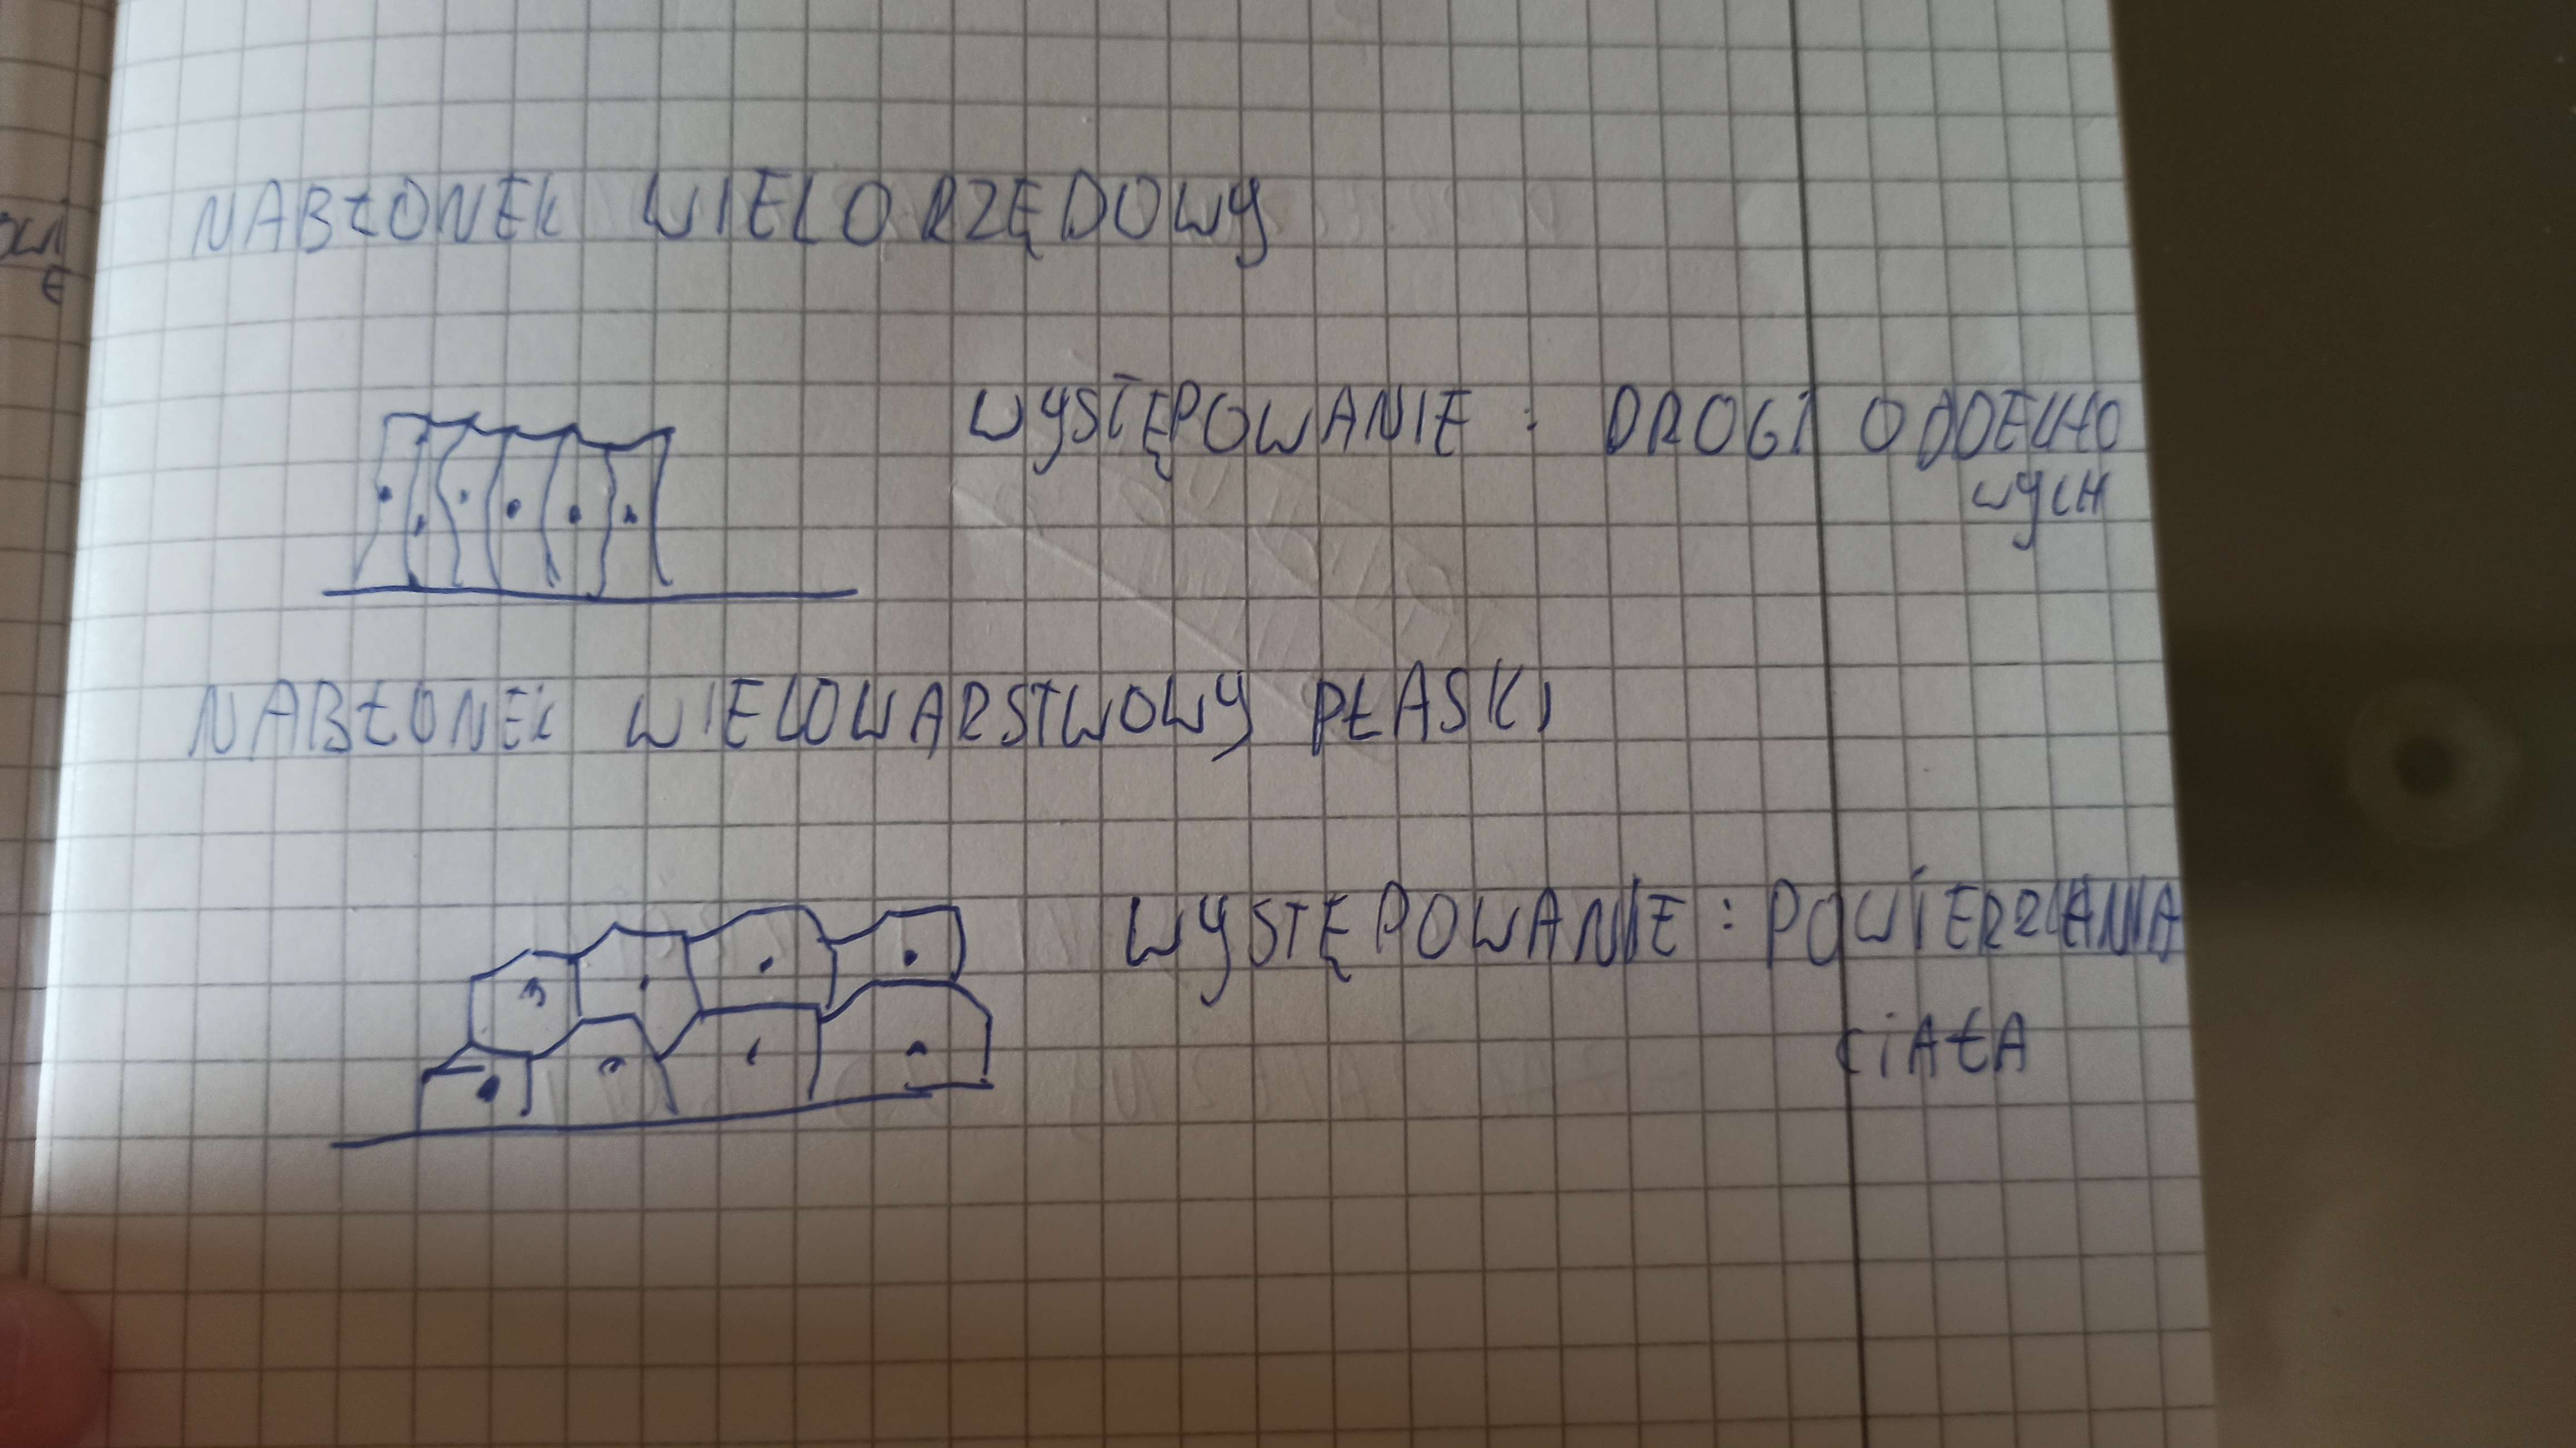 NABŁONEK WIELORZĘDOWY
WYSTĘPOWANIE : DROGI ODDECHO
WYCH
NABŁONEK WIELOWARSTWOWY PŁASKI
WYSTĘPOWANIE : POWIERZCHNIA
CIAŁA